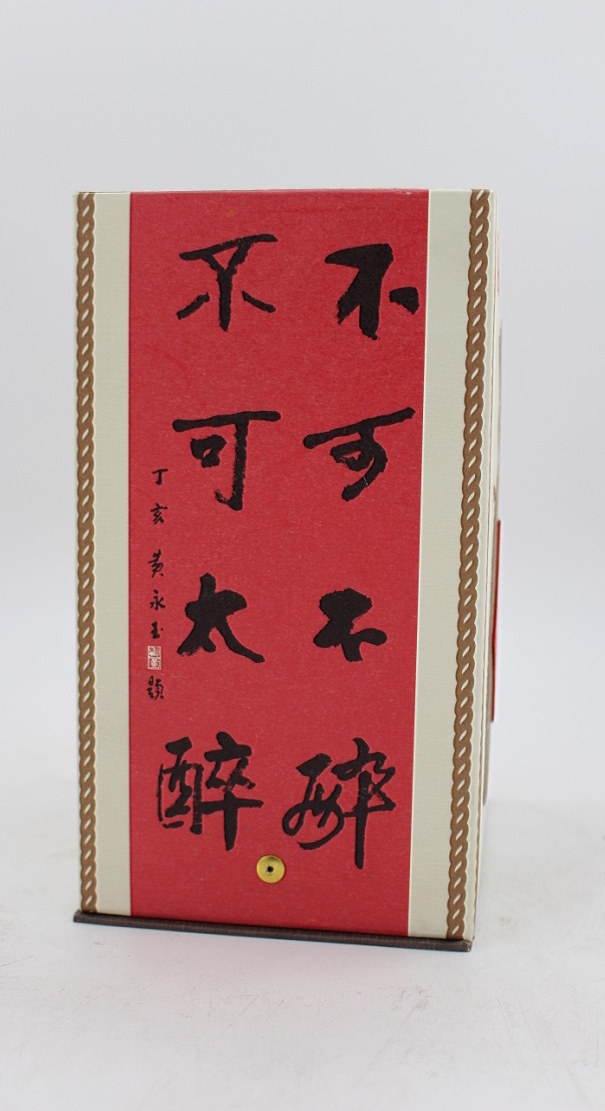 不可不醉
不可太醉
丁亥 黄永玉 题